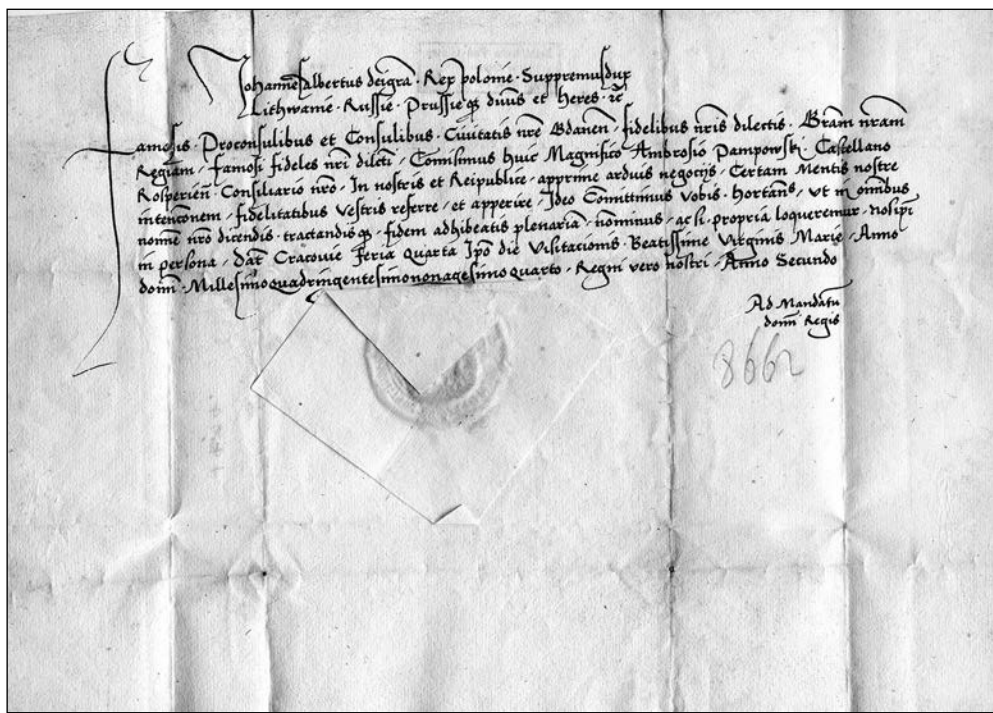 Johannes Albertus dei gra · Rex polonie · Suppremus dux
Lithwanie · Russie · Prussieq dnus et heres · rc
famosis · Proconsulibus et Consulibus · Ciuitatis nre Gdanen · fidelibus nris dilectis · Gram nram
Regiam · famosi fideles nri dilcti · Comisimus huic Magnifico Ambrosio Pampowski · Castellano
Rosperien · Consiliario nro · In nostris et Reipublice · apprime arduis negocijs · Certam Mentis nostre
intenconem · fidelitatibus vestris referre · et apperire · Ideo Comittimus vobis · hortans · vt in omibus
nomine nro dicendis · tractandisq · fidem adhibeatis plenariam · nominus · ac si · propria loqueremur · nosipi
in persona · Dat Cracouie feria quarta Ipo die visitacionis · Beatissime virginis Marie · Anno
domi · Millesimoquadringentesimononagesimoquarto · Regni vero nostri · Anno Secundo
Ad Mandatu
domi Regis
8662